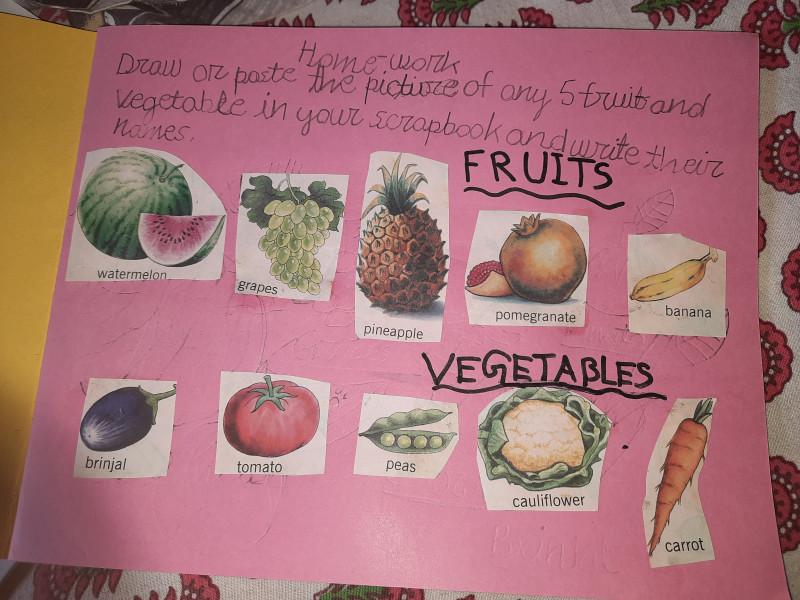 Home-work
Draw or paste the picture of any 5 fruit and
vegetable in your scrapbook and write their
names.
FRUITS
watermelon
grapes
pineapple
pomegranate
banana
VEGETABLES
brinjal
tomato
peas
cauliflower
carrot